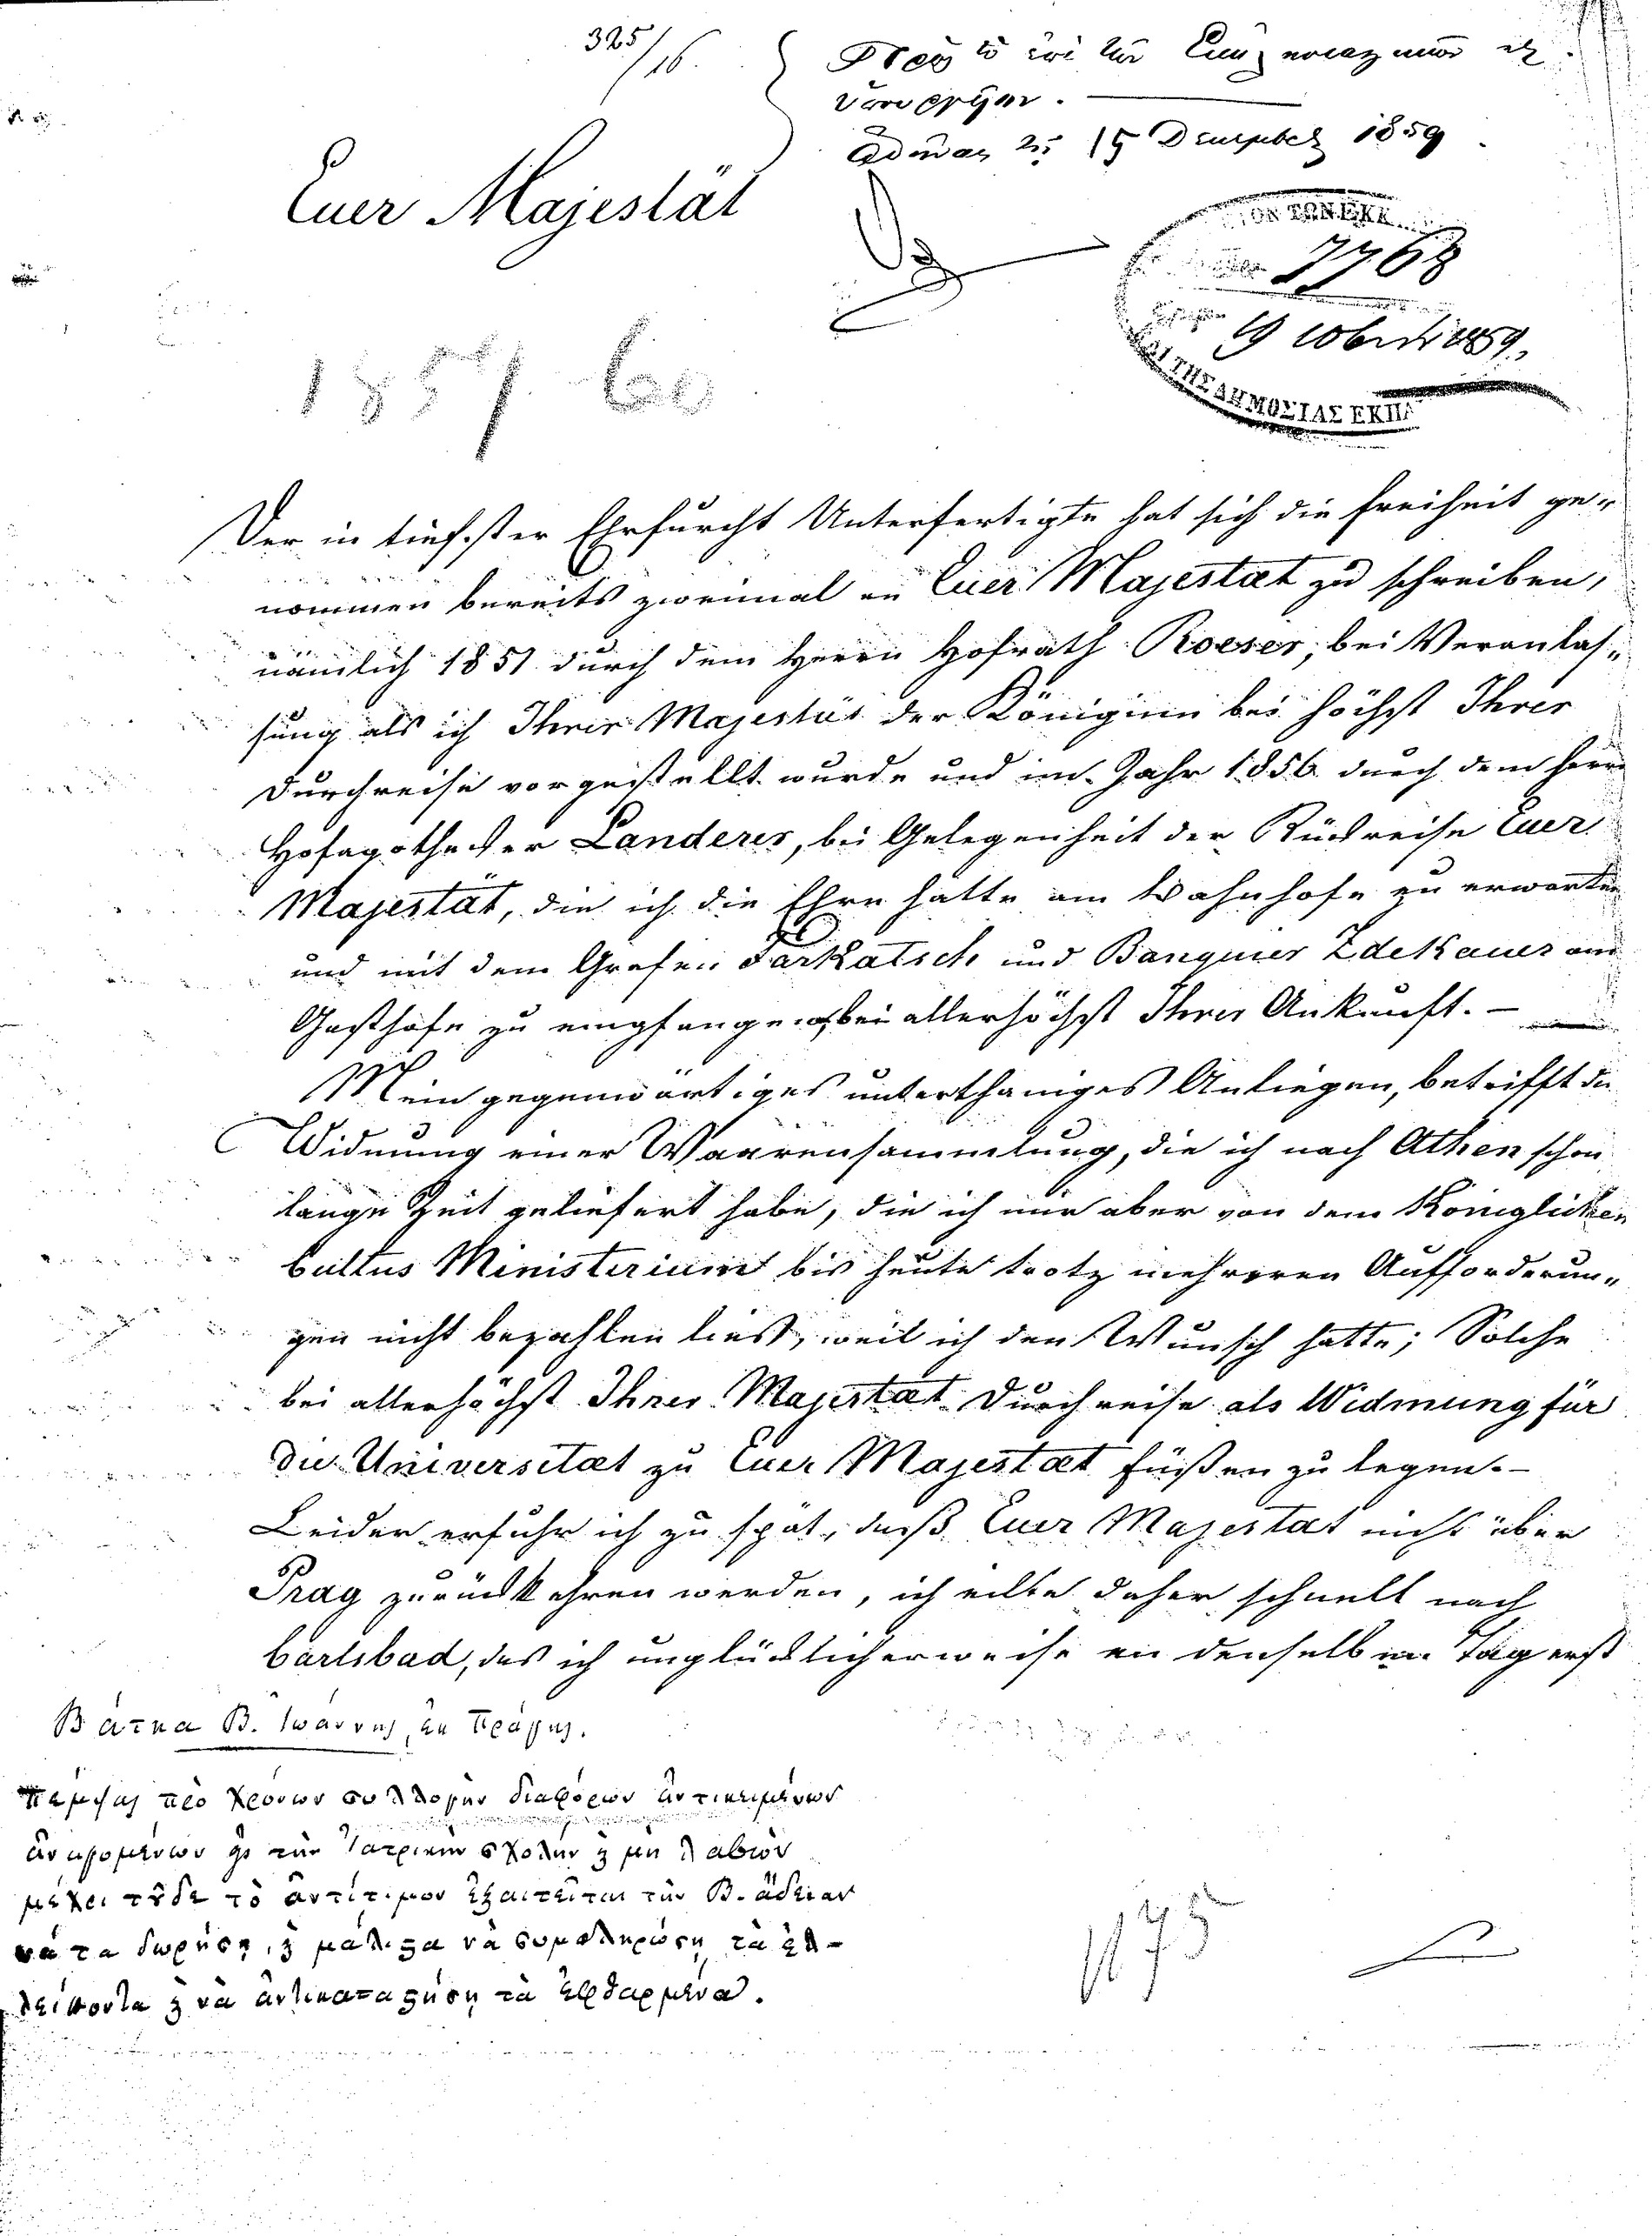 325/16.
Πρὸς τὸ ἐπὶ τῶν Ἐκκλησιαστικῶν κτλ.
ὑπουργεῖον.
Ἀθῆναι τῇ 15 Δεκεμβρ 1859
Euer Majestät
ΤΩΝ ΕΚΚ
7768
19 10βρίου 1859
ΚΑΙ ΤΗΣ ΔΗΜΟΣΙΑΣ ΕΚΠΑ
1859 60
Der in tiefster Ehrfurcht Unterfertigte hat sich die Freiheit ge=
nommen bereits zweimal an Euer Majestæt zu schreiben,
nämlich 1851 durch dem Herrn Hofrath Roeser, bei Veranlas=
sung als ich Ihrer Majestät der Königinn bei höchst Ihrer
Durchreise vorgestellt wurde und im Jahr 1856 durch dem Herrn
Hofapothecker Landerer, bei Gelegenheit der Rückreise Euer
Majestät, die ich die Ehre hatte am Bahnhofe zu erwarten
und mit dem Grafen und Banquier Zdekauer am
Gasthofe zu empfangen bei allerhöchst Ihrer Ankunft. –
Mein gegenwärtiges unterthäniges Anliegen, betrifft die
Widmung einer Waarensammlung, die ich nach Athen schon
lange Zeit geliefert habe, die ich mir aber von dem Königlichen
Cultus Ministerium bis heute trotz mehreren Aufforderun=
gen nicht bezahlen ließ, weil ich den Wunsch hatte; Solche
bei allerhöchst Ihrer Majestæt Durchreise als Widmung für
die Universitæt zu Euer Majestæt Füßen zu legen. –
Leider erfuhr ich zu spät, daß Euer Majestät nicht über
Prag zurückkehren werden, ich eilte daher schnell nach
Carlsbad, das ich unglücklicherweise an denselben Tag erst
Βάτκα Β. Ἰωάννης, ἐκ Πράγης.
Πέμψας πρὸ χρόνων συλλογὴν διαφόρων ἀντικειμένων
ἀναγομένων εἰς τὴν Ἰατρικὴν σχολὴν ϗ μὴ λαβὼν
μέχρι τοῦδε τὸ ἀντίτιμον ἐξαιτεῖται τὴν Β. ἄδειαν
νὰ τὰ δωρήσῃ, ϗ μάλιστα νὰ συμπληρώσῃ τὰ ἐλ-
λείποντα ϗ νὰ ἀντικαταστήσῃ τὰ ἐφθαρμένα.